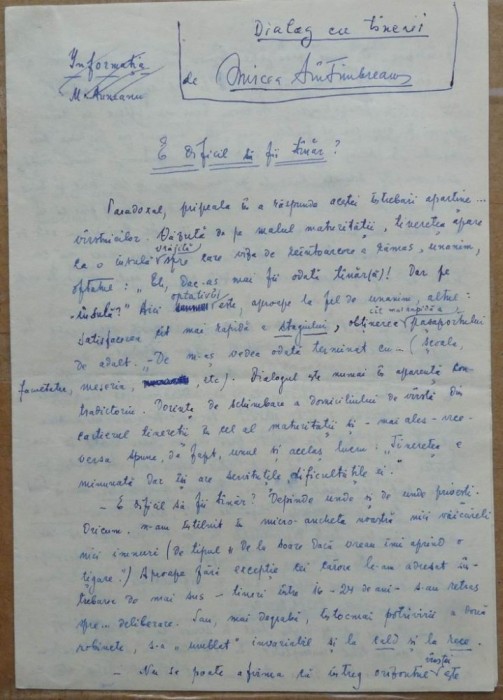 Dialog cu tinerii
Informația
de Mircea Sîntimbreanu
M. Munteanu
E dificil să fii tînăr?
Paradoxal, pripeala în a răspunde acestei întrebări aparține...
vîrstnicilor. Văzută de pe malul maturității, tinerețea apare
vrăjită
ca o insulă spre care viza de reîntoarcere a rămas, unanim,
oftatul: „Eh, dac-aș mai fi odată tînăr(ă)! Dar pe
optativul
„insulă”? Aici este, aproape la fel de unanim, altul:
cît mai rapidă a
satisfacerea cît mai rapidă a stagiului, obținerea pașaportului
de adult. „De m-aș vedea odată terminat cu — (școala,
facultatea, meseria, etc). Dialogul este numai în aparență con-
tradictoriu. Dorința de schimbare a domiciliului de vîrstă din
cartierul tinereții în cel al maturității și - mai ales - vice-
versa spune, de fapt, unul și același lucru. „Tinerețea e
minunată dar își are servituțile, dificultățile ei.”
— E dificil să fii tînăr? Depinde unde și de unde privești.
Oricum, n-am întîlnit în micro-ancheta noastră nici văicăreli
nici imnuri (de tipul de la soare dacă vream îmi aprind o
țigare.”) Aproape fără excepție cei cărora le-am adresat în-
trebarea de mai sus — tineri între 16-24 de ani — s-au retras
spre... deliberare. Sau, mai degrabă, întocmai potrivirii a două
robinete, s-a „umblat” invariabil și la cald și la rece.
vîrstei
— Nu se poate afirma că întreg orizontul este